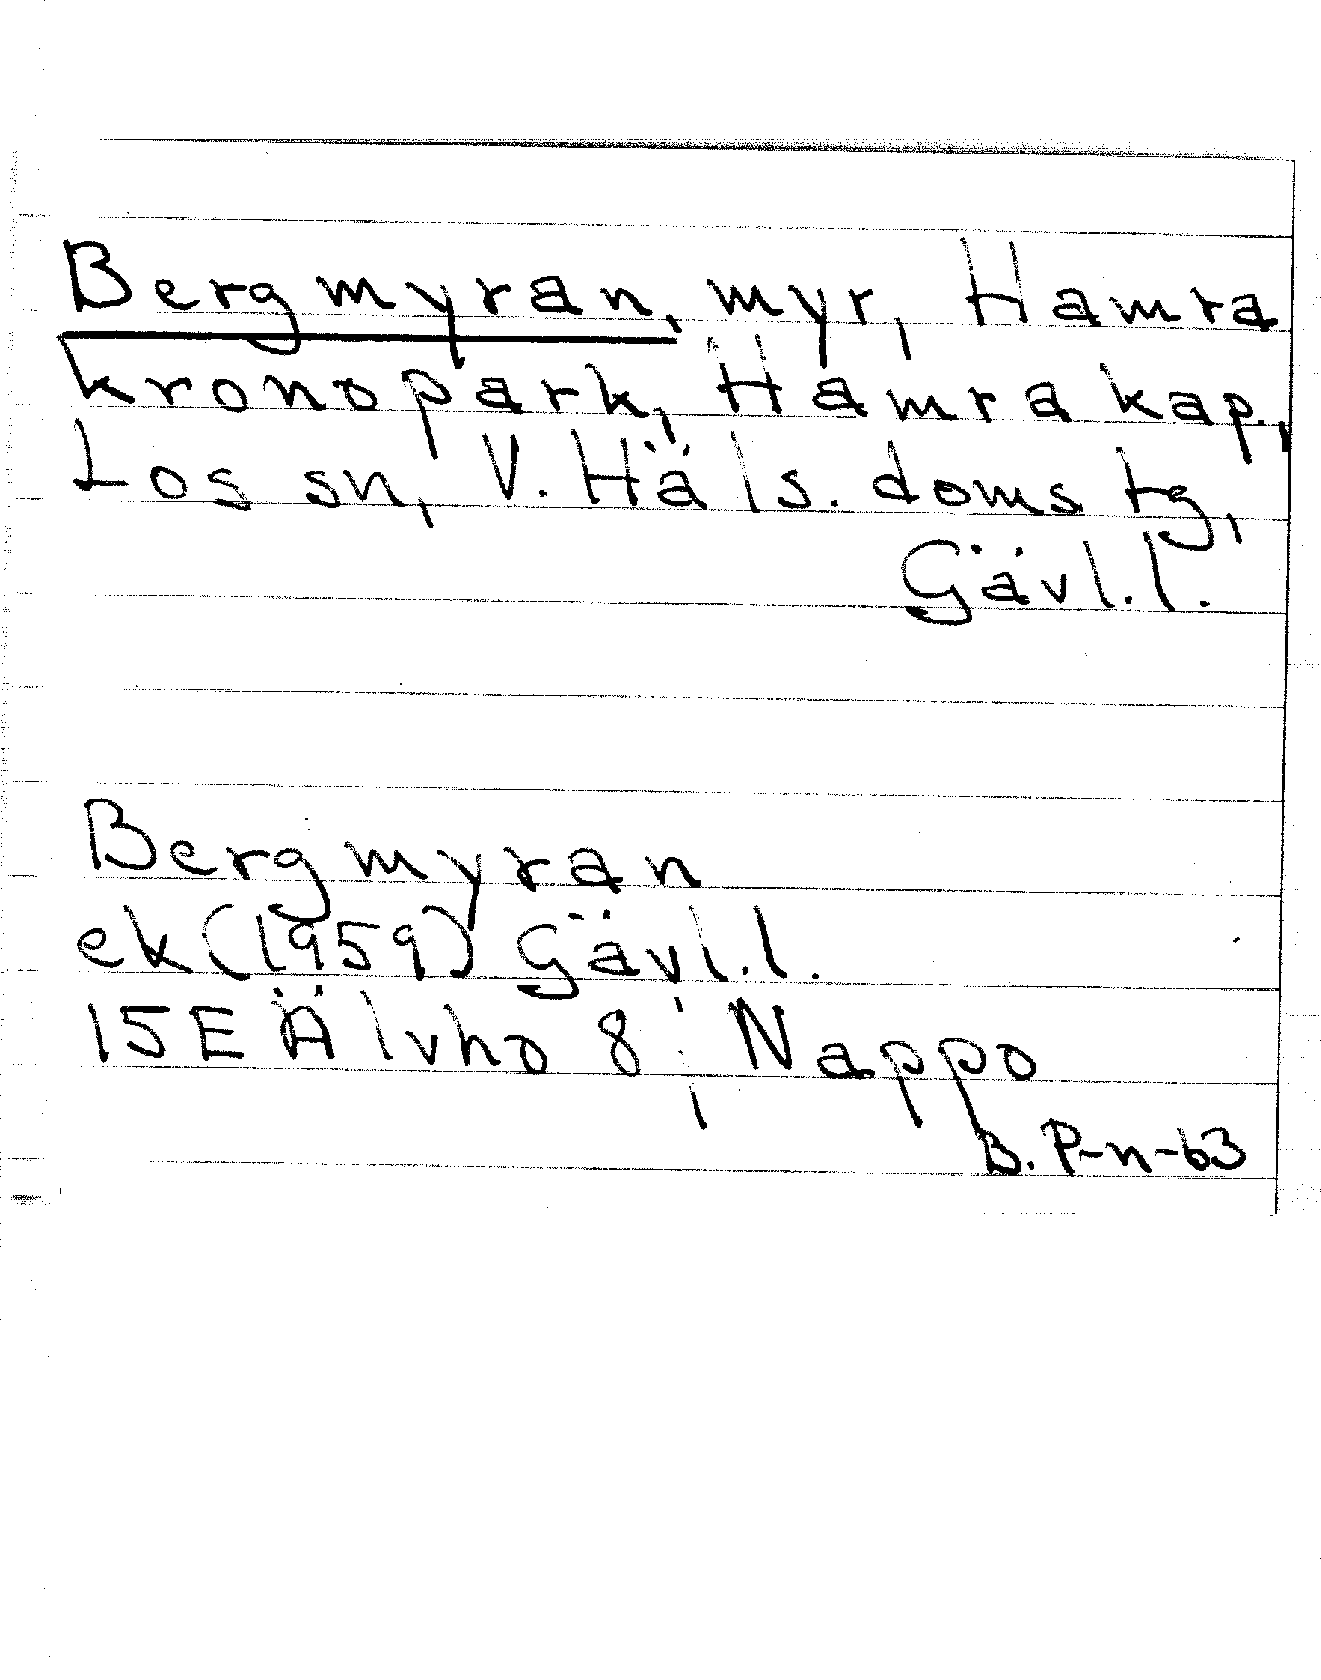 Bergmyran, myr, Hamra
kronopark, Hamra kap.,
Los sn, V. Häls. doms tg,
Gävl.l.
Bergmyran
ek (1959) Gävl.l.
15E Älvho 8; Nappo
B. P-n-63